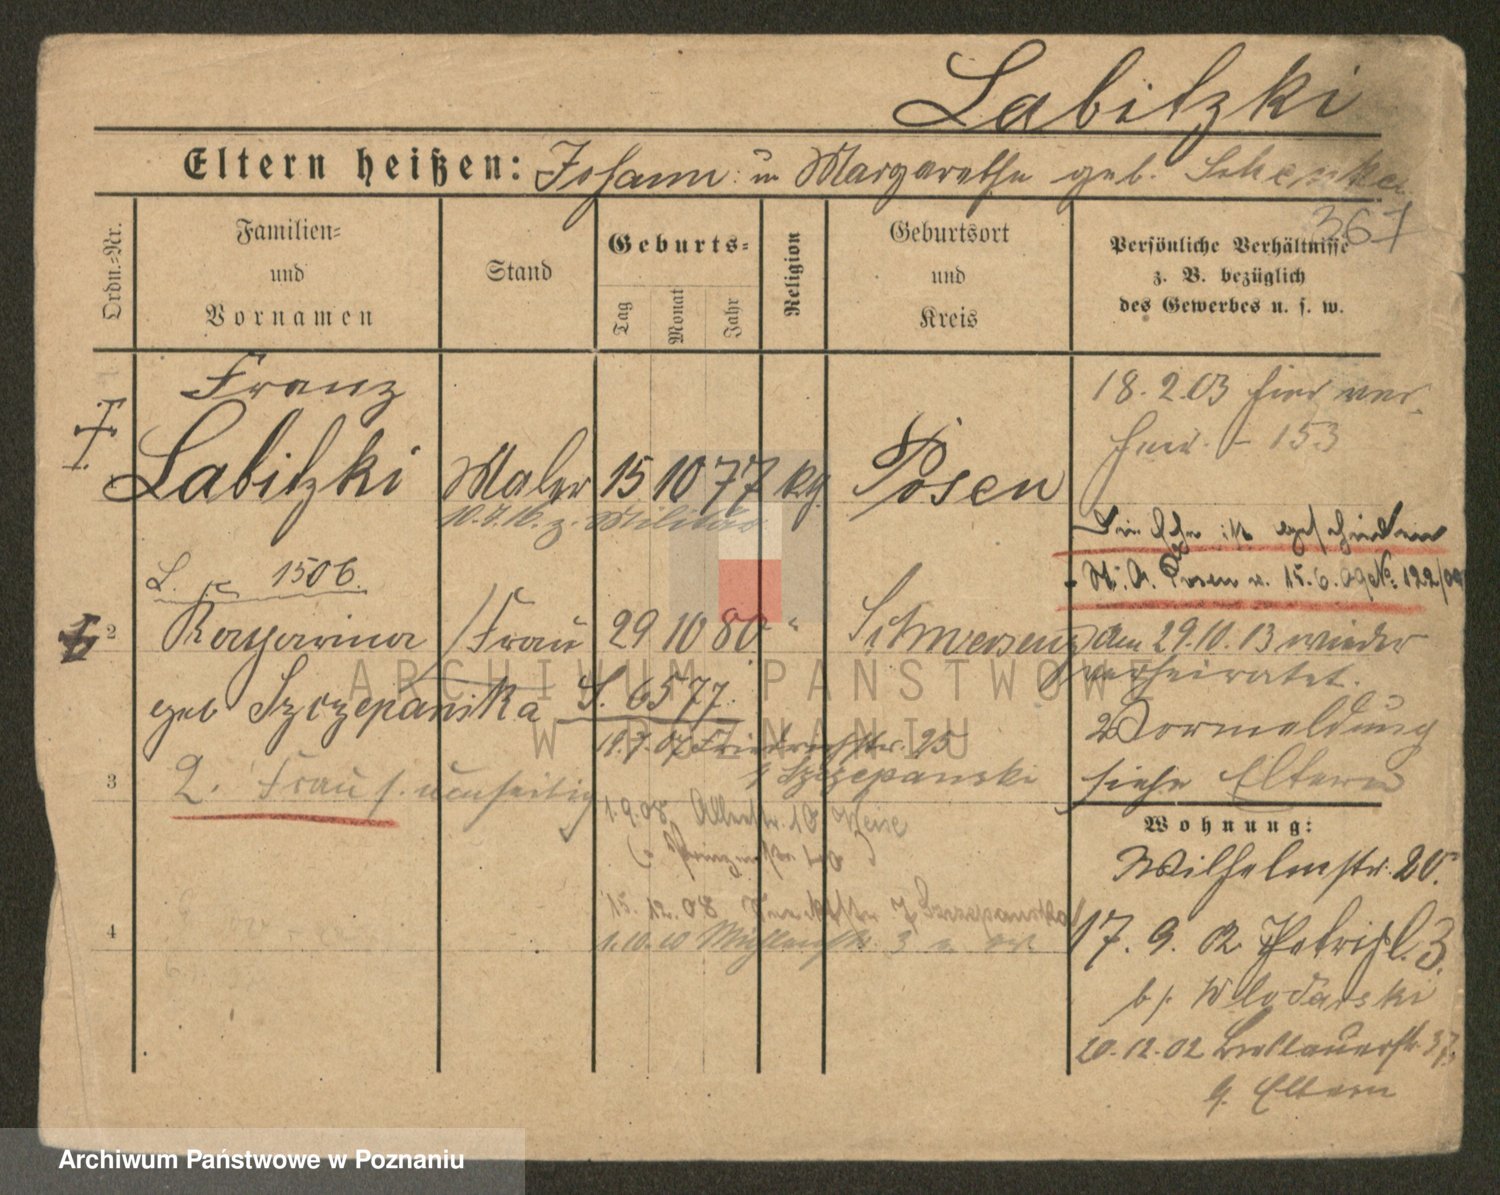 Labitzki
Eltern heißen: Johann u Margarethe geb.
367
Ordn.=Nr.
Familien=
und
Vornamen
Stand
Geburts=
Tag
Monat
Jahr
Religion
Geburtsort
und
Kreis
Persönliche Verhältnisse
z. B. bezüglich
des Gewerbes u. s. w.
Franz
Labitzki Maler 15 10 77 kg Posen
10.7.16. z. Militär
18.2.03 hier ver
153
Die Ehe ist geschieden
Posen v. 15.6.09 № 122/09
L. 1506.
2 Katharina Frau 29 10 80 " Schwersenz
geb Szczepanska S. 6577.
den 29.10.13 wieder
verheiratet.
11.7.07 Friedrichstr. 25
b Szczepanski
Vormeldung
siehe Eltern
3 2. Frau s. umseitig
1.9.08
15.12.08
4
1.10.10 3
Wohnung:
Wilhelmstr. 20.
17.9.02 Petripl. 3.
b/. Wlodarski
20.12.02 Breslauerstr. 37
b. Eltern
ARCHIWUM PAŃSTWOWE
W POZNANIU
Archiwum Państwowe w Poznaniu